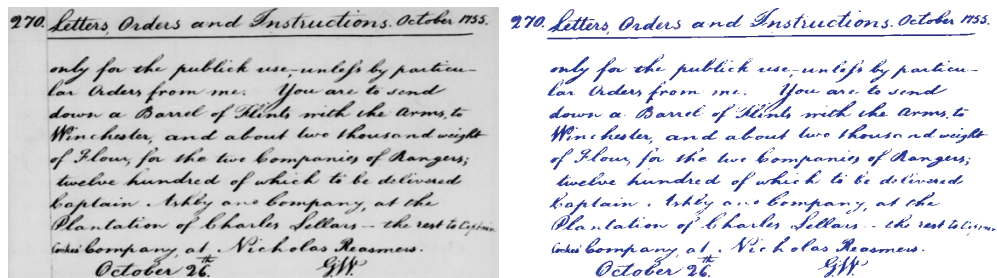 270. Letters, Orders and Instructions. October 1755.
only for the publick use, unless by particu-
lar Orders from me. You are to send
down a Barrel of Flints with the Arms, to
Winchester, and about two thousand weight
of Flour, for the two Companies of Rangers;
twelve hundred of which to be delivered
Captain Ashby and Company, at the
Plantation of Charles Sellars - the rest to Captain
Cockes Company at Nicholas Reasmers.
October 26th GW.
270. Letters, Orders and Instructions. October 1755.
only for the publick use, unless by particu-
lar Orders from me. You are to send
down a Barrel of Flints with the Arms, to
Winchester, and about two thousand weight
of Flour, for the two Companies of Rangers;
twelve hundred of which to be delivered
Captain Ashby and Company, at the
Plantation of Charles Sellars - the rest to Captain
Cockes Company at Nicholas Reasmers.
October 26th GW.